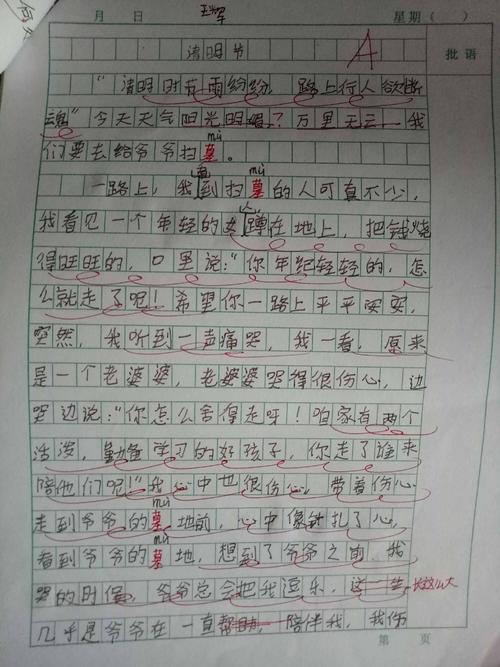 月 日 王辉 星期（ ）
清明节 A 批语
"清明时节雨纷纷 路上行人欲断
魂"今天天气阳光明媚？万里无云 我
们要去给爷爷扫墓。 mù
一路上，我看到扫墓的人可真不少， mù
我看见一个年轻的女人蹲在地上，把钱烧
得旺旺的，口里说："你年纪轻轻的，怎
么就走了呢！希望你一路上平平安安，
突然，我听到一声痛哭，我一看，原来
是一个老婆婆，老婆婆哭得很伤心，边
哭边说："你怎么舍得走呀！咱家有两个
活泼，勤奋学习的好孩子，你走了谁来
陪他们呢！"我心中也很伤心，带着伤心
走到爷爷的墓地前，心中像针扎了心， mù
看到爷爷的墓地，想到了爷爷之前，我 mù
哭的时候，爷爷总会把我逗乐，这一生 长这么大
几乎是爷爷在一直帮助，陪伴我，我你
第 页